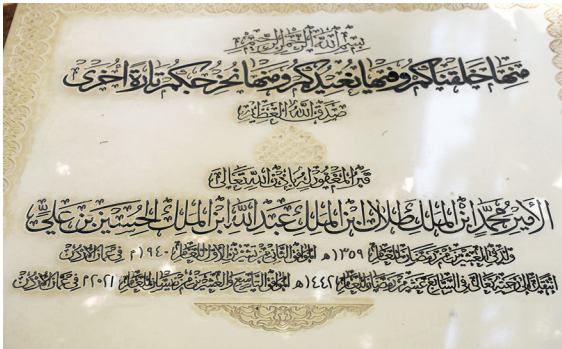 بسم الله الرحمن الرحيم
منها خلقناكم وفيها نعيدكم ومنها نخرجكم تارة أخرى
صدق الله العظيم
قبر المغفور له بإذن الله تعالى
الأمير محمد ابن الملك طلال ابن الملك عبد الله ابن الملك الحسين بن علي
ولد في العشرين من رمضان للعام ١٣٥٩ هـ الموافق الثاني من تشرين الأول للعام ١٩٤٠م في عمان الأردن
انتقل إلى رحمته تعالى في السابع عشر من رمضان للعام ١٤٤٢ هـ الموافق التاسع والعشرين من نيسان للعام ٢٠٢١م في عمان الأردن